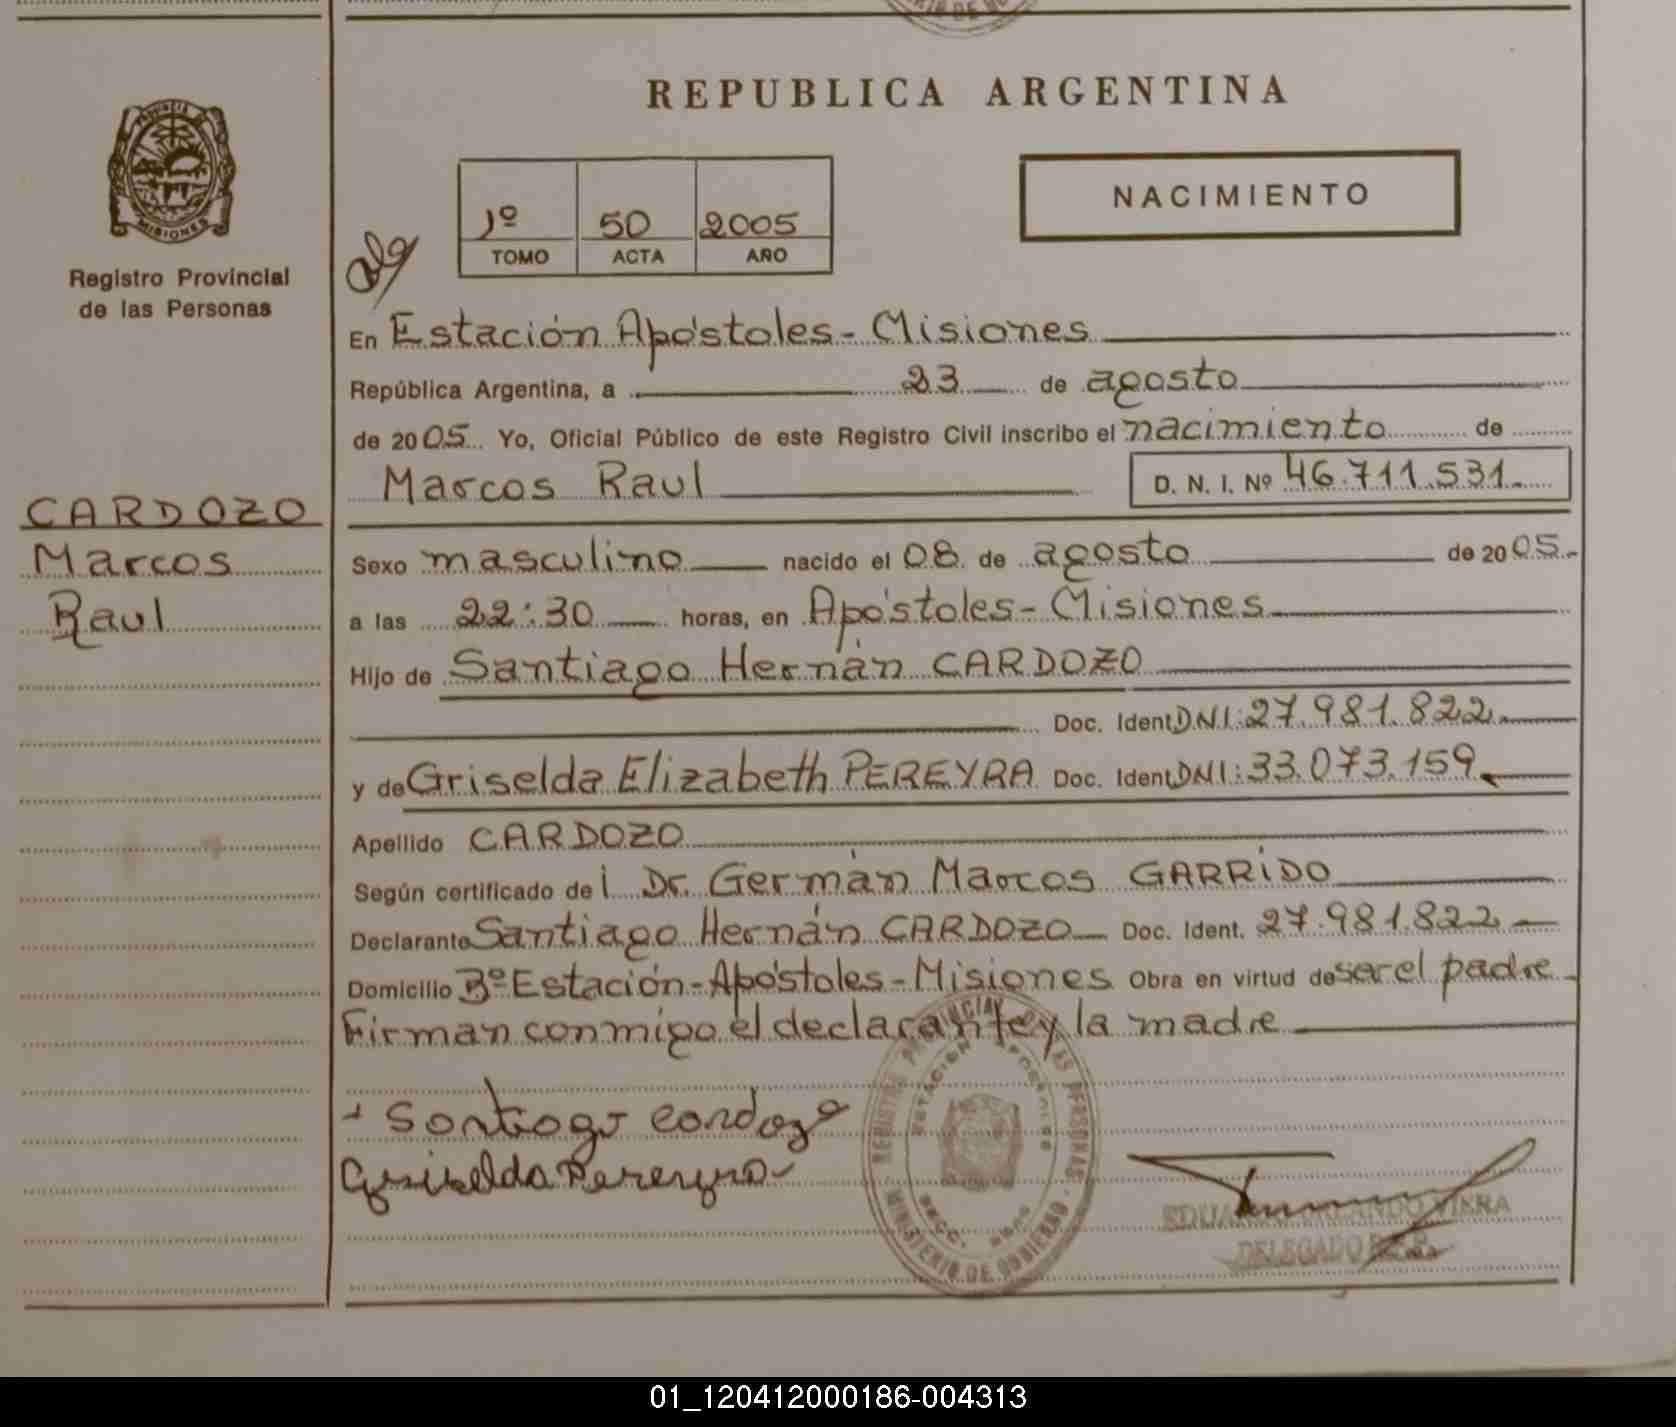 REPUBLICA ARGENTINA
PROVINCIA
MISIONES
Registro Provincial
de las Personas
CARDOZO
Marcos
Raul
1º 50 2005
TOMO ACTA AÑO
NACIMIENTO
En Estación Apóstoles - Misiones
República Argentina, a 23 de agosto
de 2005 Yo, Oficial Público de este Registro Civil inscribo el nacimiento de
Marcos Raul D. N. I. Nº 46.711.531.
Sexo masculino nacido el 08 de agosto de 2005.
a las 22:30 horas, en Apóstoles - Misiones
Hijo de Santiago Hernán CARDOZO
Doc. Ident. DNI: 27.981.822.
y de Griselda Elizabeth PEREYRA Doc. Ident. DNI: 33.073.159
Apellido CARDOZO
Según certificado del Dr. Germán Marcos GARRIDO
Declarante Santiago Hernán CARDOZO Doc. Ident. 27.981.822
Domicilio Bº Estación - Apóstoles - Misiones Obra en virtud de ser el padre
Firman conmigo el declarante y la madre
Santiago Cardozo
Griselda Pereyra
REGISTRO PROVINCIAL DE LAS PERSONAS
ESTACION APOSTOLES
MINISTERIO DE GOBIERNO
EDUARDO ORLANDO VIERA
DELEGADO R.P.P.
01_120412000186-004313